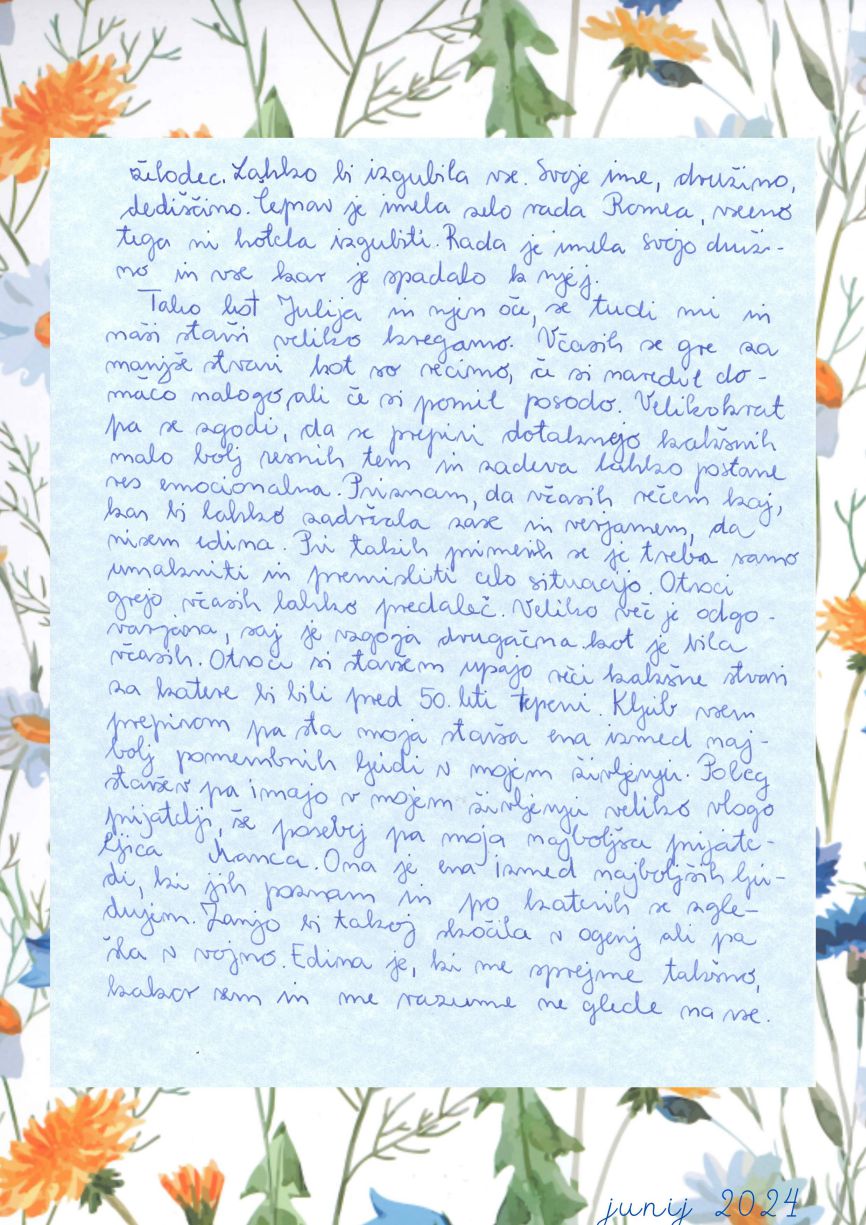 želodec. Lahko bi izgubila vse. Svoje ime, družino,
dediščino. Čeprav je imela zelo rada Romea, vseeno
tega ni hotela izgubiti. Rada je imela svojo druži-
no in vse kar je spadalo k njej.
Tako kot Julija in njen oče, se tudi mi in
naši starši veliko kregamo. Včasih se gre za
manjše stvari kot so recimo, če si naredil do-
mačo nalogo, ali če si pomil posodo. Velikokrat
pa se zgodi, da se prepiri dotaknejo kakšnih
malo bolj resnih tem in zadeva lahko postane
res emocionalna. Priznam, da včasih rečem kaj,
kar bi lahko zadržala zase in verjamem, da
nisem edina. Pri takih primerih se je treba samo
umakniti in premisliti celo situacijo. Otroci
grejo včasih lahko predaleč. Veliko več je odgo-
varjana, saj je vzgoja drugačna kot je bila
včasih. Otroci si staršem upajo reči kakšne stvari
za katere bi bili pred 50. leti tepeni. Kljub vsem
prepirom pa sta moja starša ena izmed naj-
bolj pomembnih ljudi v mojem življenju. Poleg
staršev pa imajo v mojem življenju veliko vlogo
prijatelji, še posebej pa moja najboljša prijate-
ljica Manca. Ona je ena izmed najboljših lju-
di, ki jih poznam in po katerih se zgle-
dujem. Zanjo bi takoj skočila v ogenj ali pa
šla v vojno. Edina je, ki me sprejme takšno,
kakor sem in me razume ne glede na vse.
junij 2024